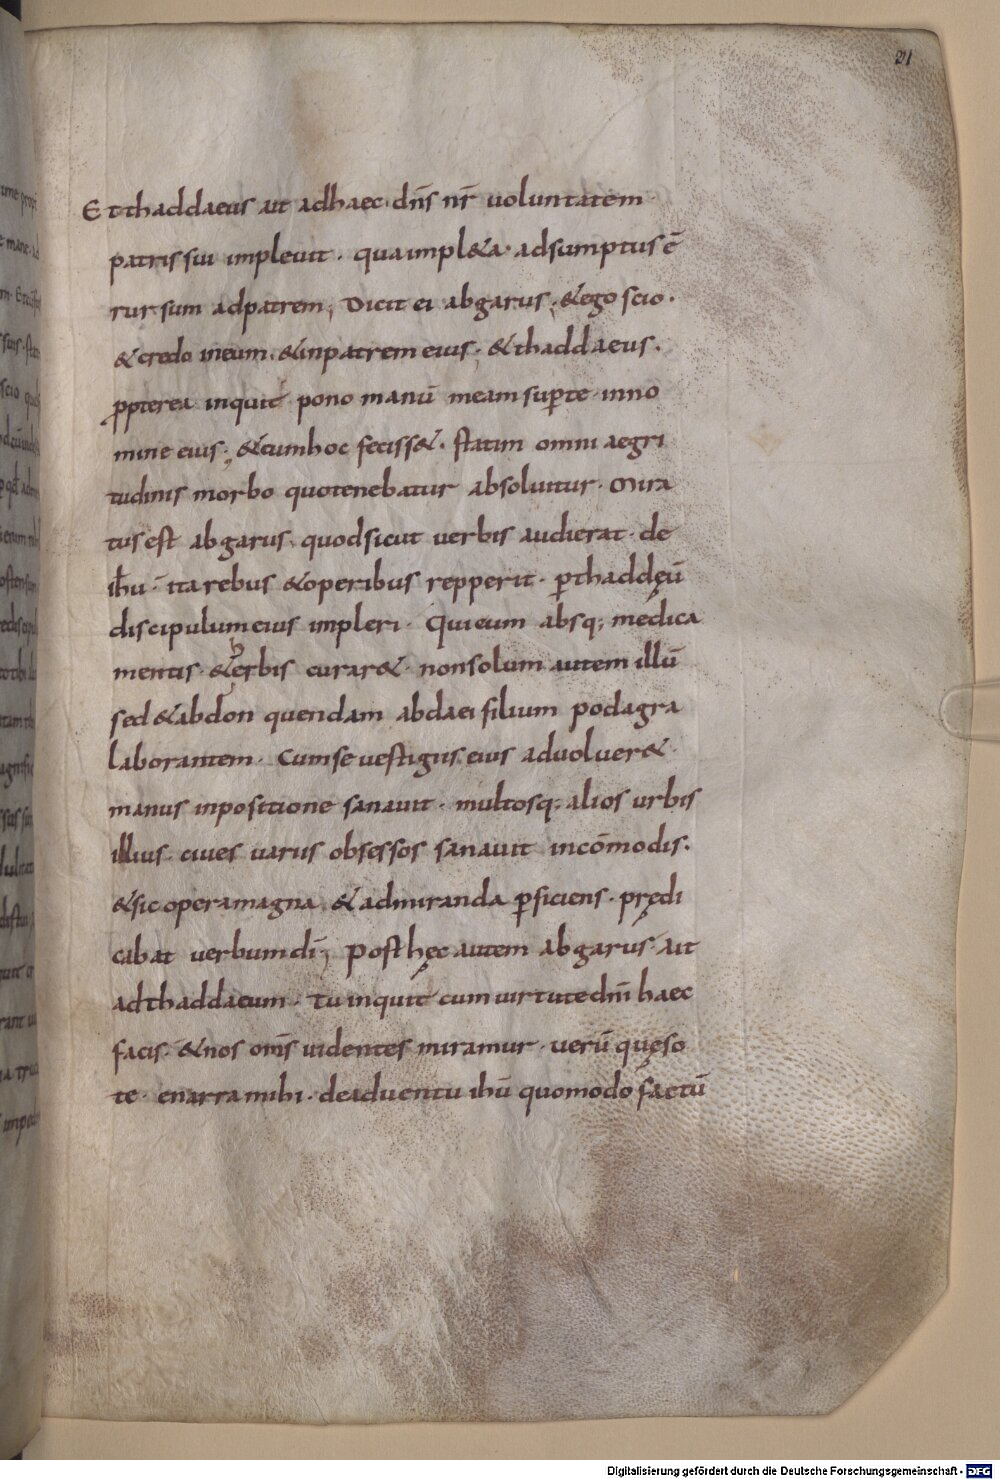 21
Et thaddaeus ait adhaec dn̄s nr̄ uoluntatem
patris sui impleuit · qua impl&a · adsumptus ē
rursum adpatrem; Dicit ei abgarus; &ego scio ·
&credo ineum · &inpatrem eius · &thaddaeus ·
ꝓpterea inquit pono manū meam suꝑte inno
mine eius; &cumhoc feciss& · statim omni aegri
tudinis morbo quotenebatur absoluitur · Mira
tus est abgarus quodsicut uerbis audierat de
ih̄u · ita rebus &operibus repperit · ꝑthaddęū
discipulum eius impleri · Qui eum absq; medica
mentis · &herbis curar& · nonsolum autem illū
sed &abdon quendam abdaei filium podagra
laborantem · Cumse uestigiis eius aduoluer& ·
manus inpositione sanauit · multosq; alios urbis
illius ciues uariis obsessos sanauit incōmodis ·
&sic opera magna &admiranda ꝑficiens · prędi
cabat uerbum dī; Post hęc autem abgarus · ait
ad thaddaeum · Tu inquit cum uirtute dnī haec
facis · &nos om̄s uidentes miramur · uerū quęso
te · enarra mihi · deaduentu ih̄u quomodo factū
Digitalisierung gefördert durch die Deutsche Forschungsgemeinschaft - DFG